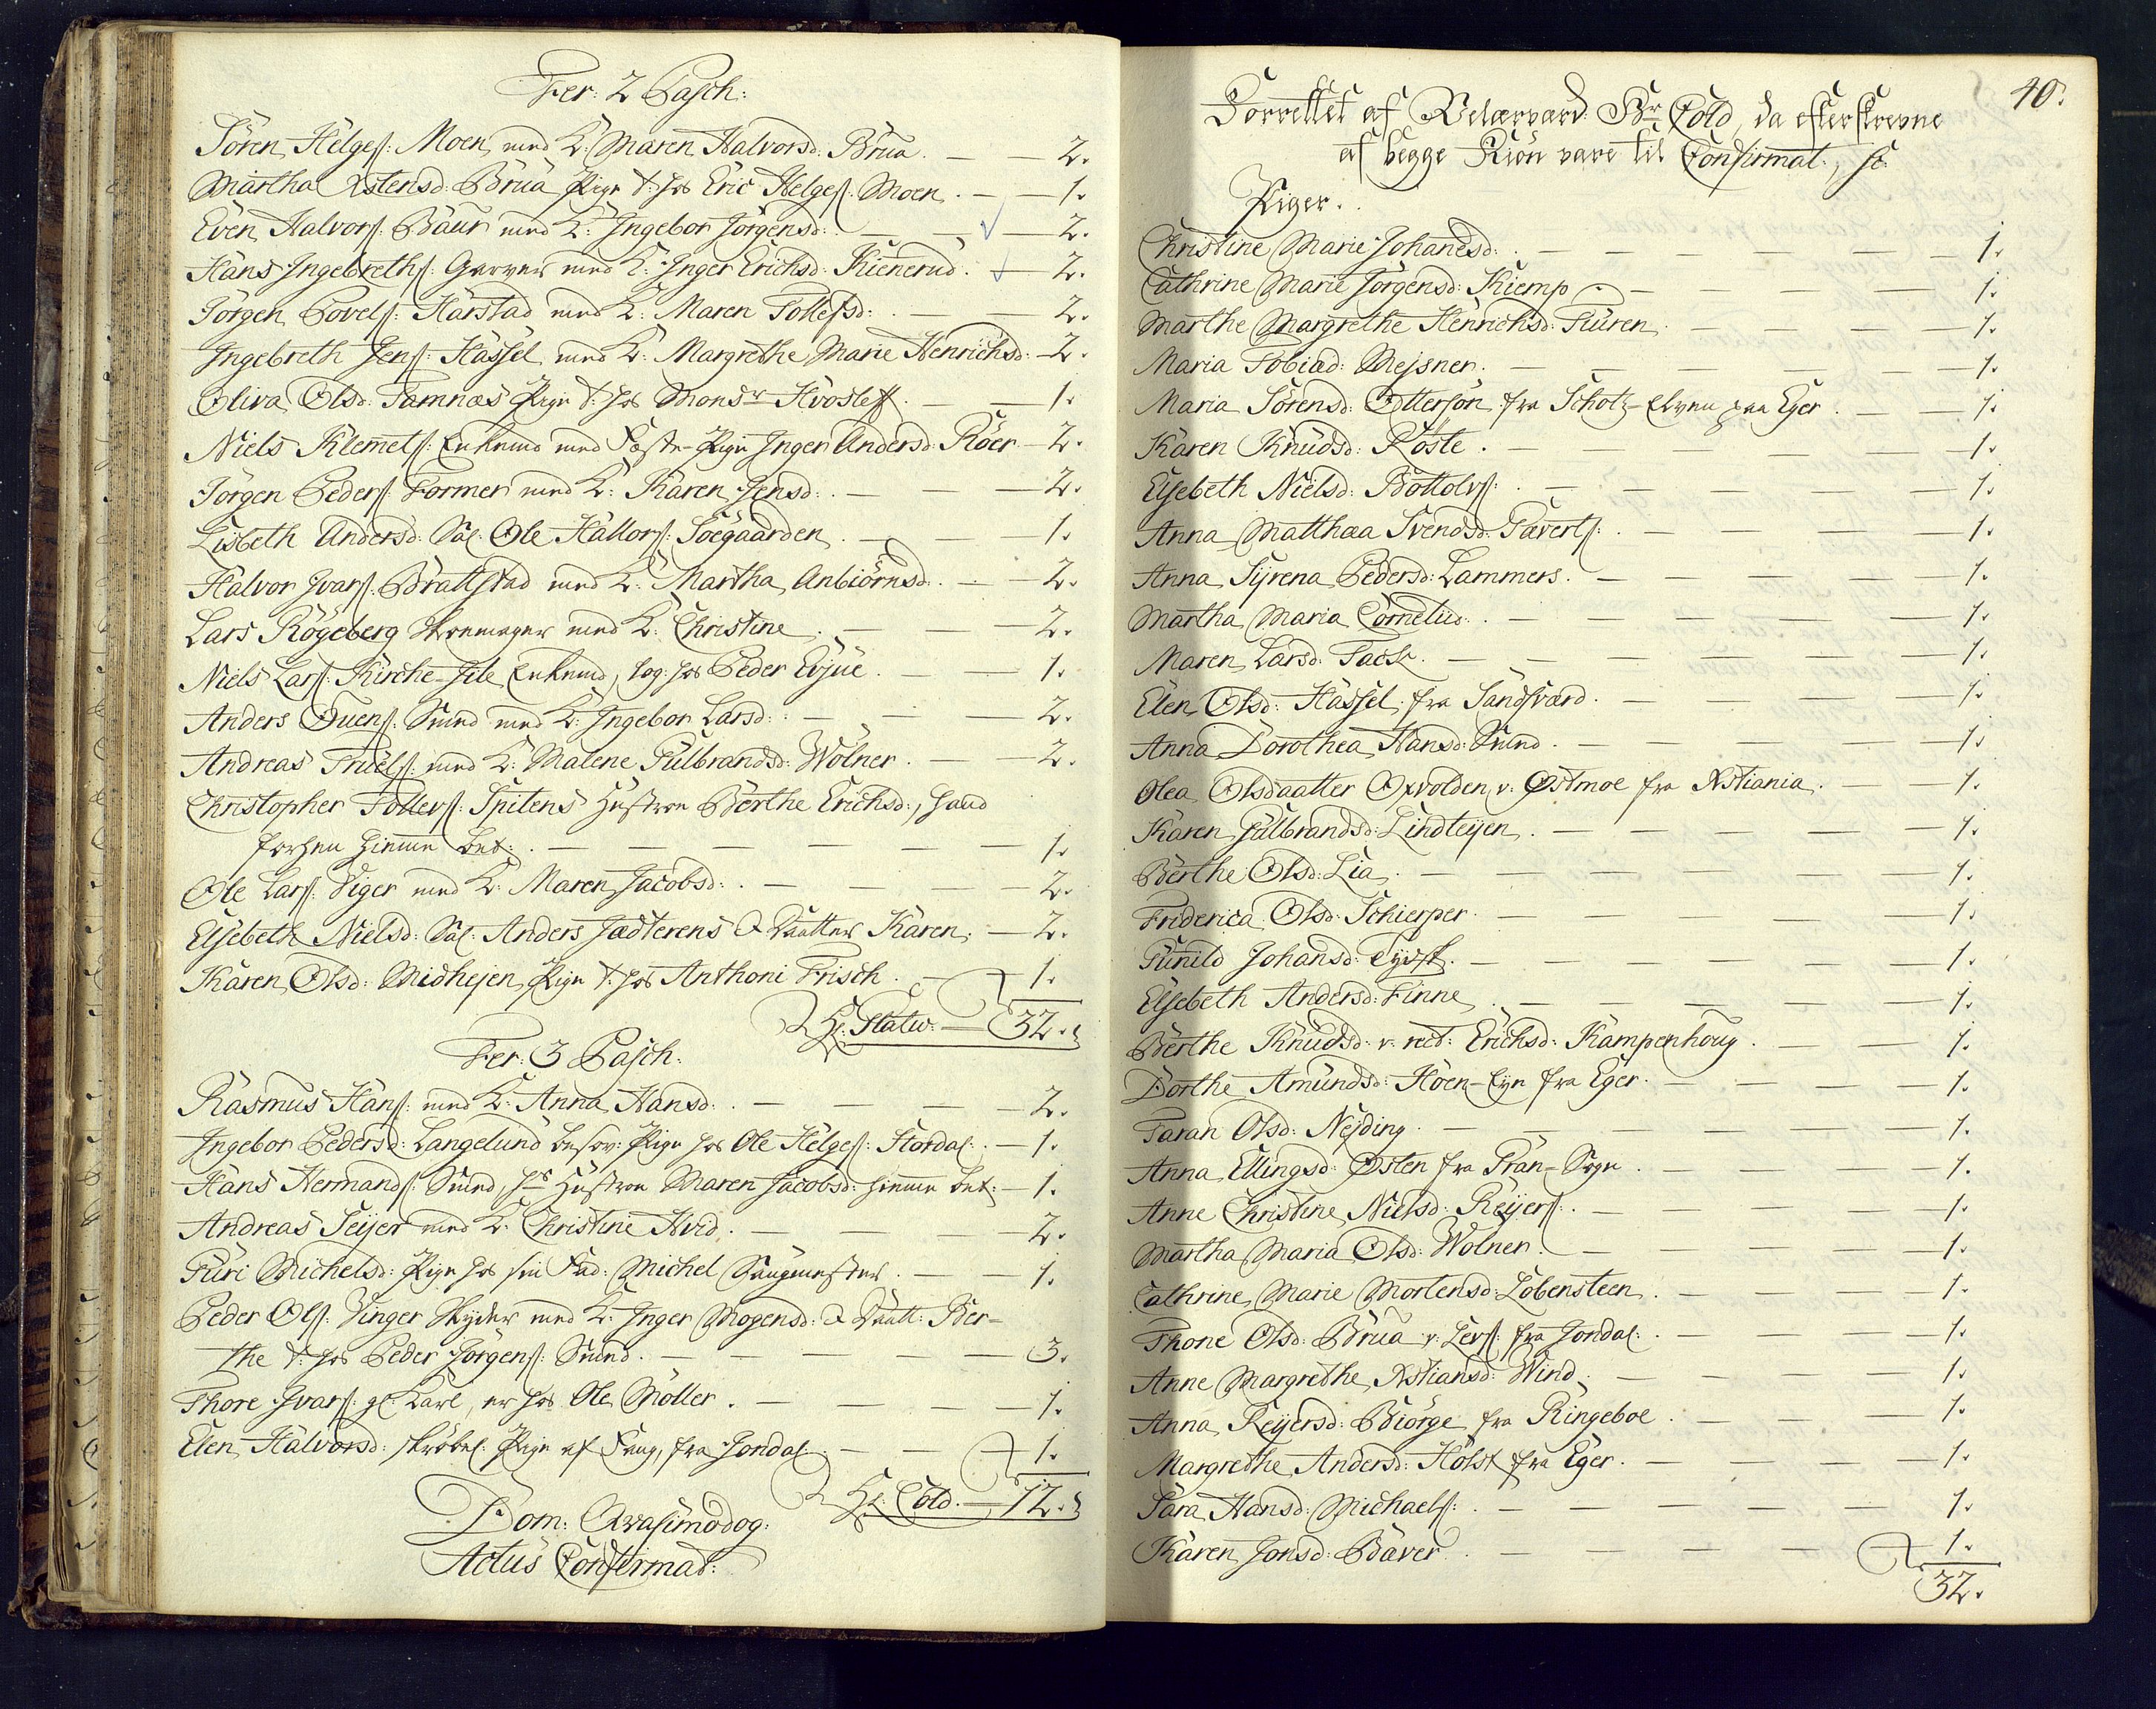 Fer: 2 Pasch:
Sören Helges: Moen med K: Maren Halvorsd: Brua. — — 2.
Martha Xstensd: Brua Pige t: hos Eric Helges: Moen. — 1.
Even Halvors: Baur med K: Ingebor Jörgensd: — — 2.
Hans Ingebreths: Garver med K: Inger Erichsd: Kienerud. — 2.
Jörgen Povels: Harstad med K: Maren Tollefsd: — — 2.
Ingebreth Jens: Hassel med K: Margrethe Marie Henrichsd: — 2.
Oliva Olsd: Tamnæs Pige t: hos Monsr Hvosleff. — 1.
Niels Klemets: Enkemd med Fæste-Pige Inger Andersd: Röer — 2.
Jörgen Peders: Former med K: Karen Jensd: — — 2.
Lisbeth Andersd: Sal: Ole Hallors: Söegaarden. — — 1.
Halvor Ivars: Brattstad med K: Martha Anbiörnsd: — 2.
Lars Rögeberg Skoemager med K: Christine. — — 2.
Niels Lars: Kirche-Jile Enkemd, log: hos Peder Evjue. — 1.
Anders Ouens: Smed med K: Ingebor Larsd: — — 2.
Andreas Truels: med K: Malene Gulbrandsd: Wölner. — 2.
Christopher Tollevs: Spitens Hustroe Berthe Erichsd:, hand
forhen hiemme bet: — — — — 1.
Ole Lars: Viger med K: Maren Jacobsd: — — 2.
Elsebeth Nielsd: Sal: Anders Jædterens & Daatter Karen. — 2.
Karen Olsd: Midhejen Pige t: hos Anthoni Frisch. — 1.
Hr: Statw. — 32.
Fer: 3 Pasch:
Rasmus Hans: med K: Anna Hansd: — — 2.
Ingebor Pedersd: Langelund besov: Pige hos Ole Helges: Stordal: — 1.
Hans Hermands: Smed, hs Hustroe Maren Jacobsd: hiemme bet: — 1.
Andreas Seyer med K: Christine Hvid. — — 2.
Guri Michelsd: Pige hos sin Fad: Michel Saugmester. — — 1.
Peder Ols: Vinger Skyder med K: Inger Mogensd: & Daatt: Ber-
the t: hos Peder Jörgens: Smed. — — — 3.
Thore Ivars: gl: Karl, er hos Ole Möller. — — — 1.
Elen Halvorsd: skröbel: Pige af Saug, fra Jondal — — 1.
Hr: Cold. — 12.
Dom: Qvasimodog:
Actus Confirmat:
40.
Forrettet af Velærværd: Hr Cold, da efterskrevne
af begge Kiön vare til Confirmat:, sc:
Piger.
Christine Marie Johansd: — — — 1.
Cathrine Marie Jörgensd: Kiemp. — — — 1.
Marthe Margrethe Henrichsd: Furen. — — 1.
Maria Tobiæd: Mejsner. — — — 1.
Maria Sörensd: Otterson fra Schotz-Elven paa Eger. — 1.
Karen Knudsd: Koste. — — — 1.
Elsebeth Nielsd: Bottolvs: — — — 1.
Anna Matthæa Svendsd: Taverts: — — — 1.
Anna Syrena Pedersd: Lammers. — — — 1.
Martha Maria Cornelii: — — — 1.
Maren Larsd: — — — 1.
Elen Olsd: Hassel fra Sandsværd. — — 1.
Anna Dorothea Hansd: Smed. — — — 1.
Olea Olsdaatter Opvolden v: Østmoe fra Xstiania. — 1.
Karen Gulbrandsd: Lindteyen. — — — 1.
Berthe Olsd: Lia. — — — 1.
Friderica Olsd: Schierper. — — — 1.
Gunild Johansd: Tydsk. — — — 1.
Elsebeth Andersd: Finne. — — — 1.
Berthe Knudsd: v: rect: Erichsd: Kampenhoug. — 1.
Dorthe Amundsd: Höen-Eye fra Eger. — — 1.
Taran Olsd: Nejding. — — — 1.
Anna Ellingsd: Østen fra Gran-Sogn. — — 1.
Anne Christine Nielsd: Reyers: — — — 1.
Martha Maria Olsd: Wolner. — — — 1.
Cathrine Marie Mortensd: Lobensteen. — — 1.
Thone Olsd: Brua v: Levs: fra Jondal: — — 1.
Anne Margrethe Xstiansd: Wind. — — — 1.
Anna Reyersd: Biörge fra Ringeboe. — — 1.
Margrethe Andersd: Holst fra Eger. — — 1.
Sara Hansd: Michaels: — — — 1.
Karen Jonsd: Baver. — — — 1.
32.